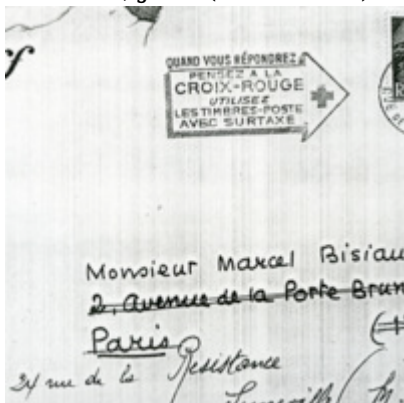 QUAND VOUS RÉPONDREZ
PENSEZ A LA
CROIX-ROUGE
UTILISEZ
LES TIMBRES-POSTE
AVEC SURTAXE
Monsieur Marcel Bisiau
2, Avenue de la Porte Brun
Paris
24 rue de la Resistance